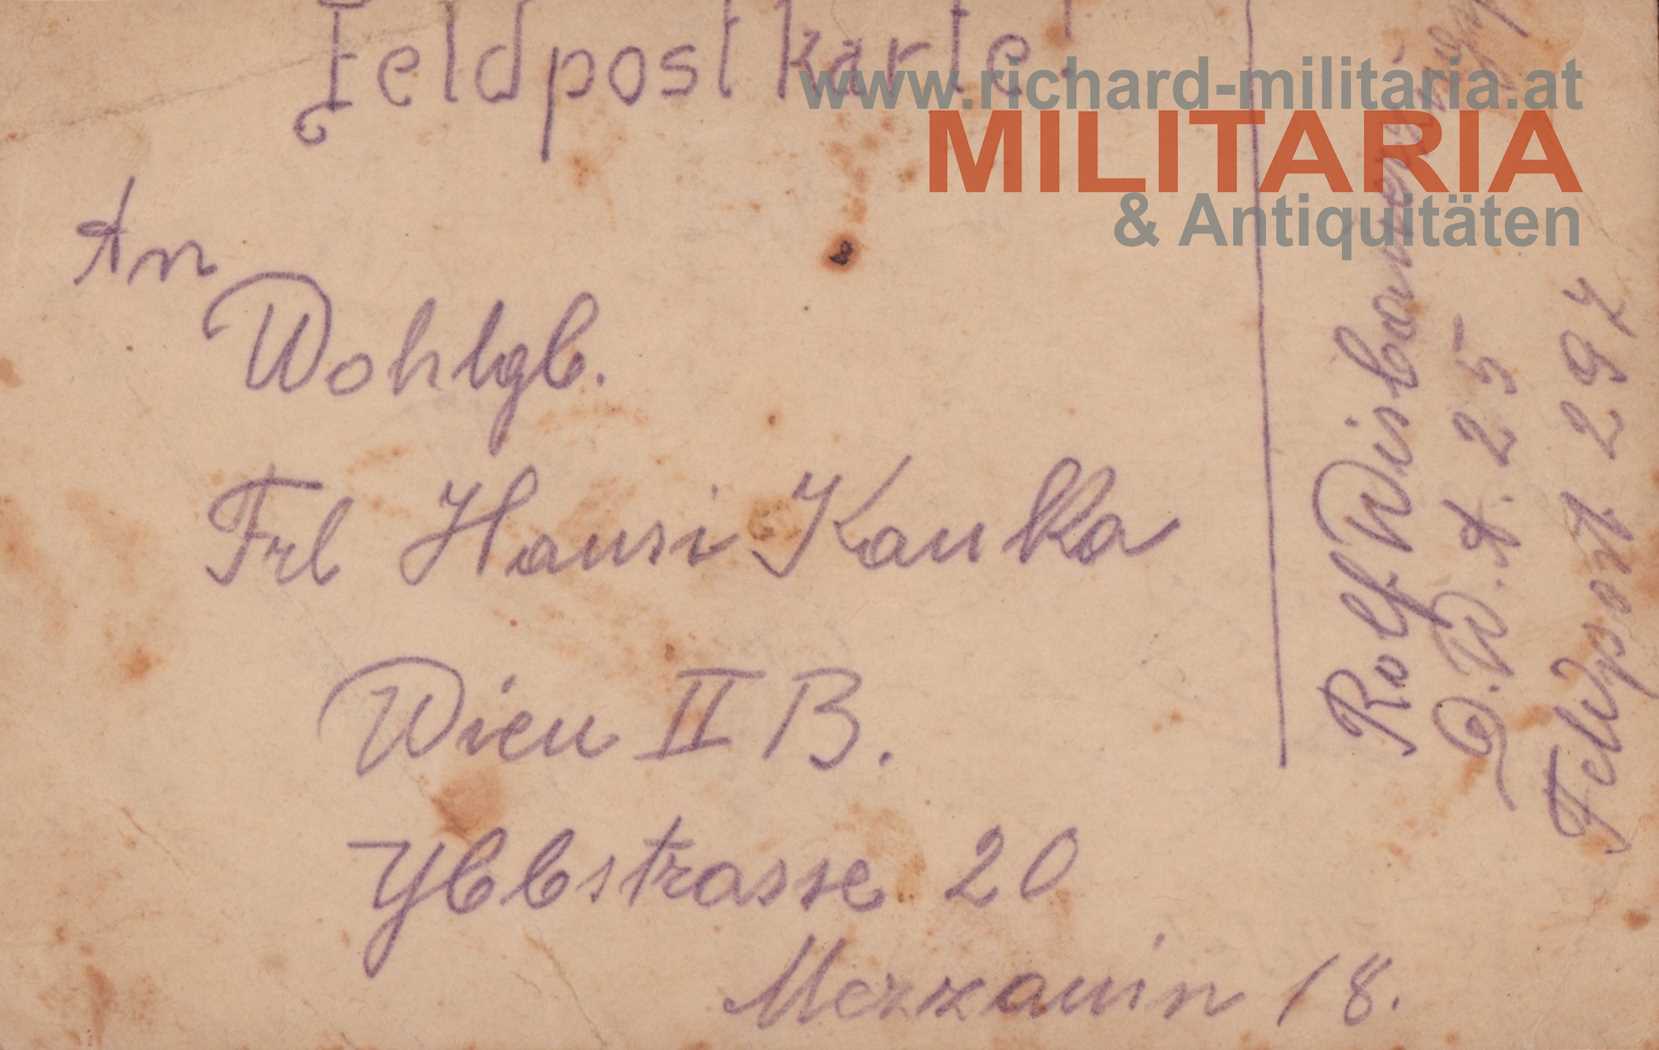 Feldpostkarte!
www.richard-militaria.at
MILITARIA
& Antiquitäten
An
Wohlgb.
Frl Hansi Kauka
Wien II B.
Ybbstrasse 20
Mezzanin 18.
Rolf
25
Feldpost 297